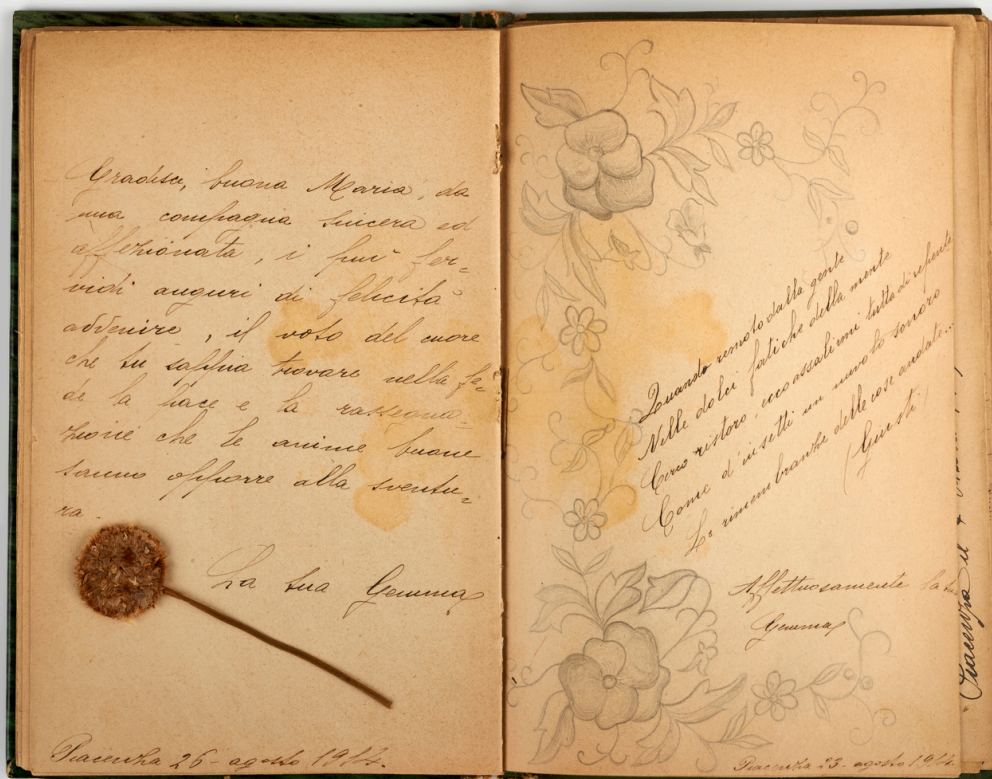 Gradisci, buona Maria, da
una compagna sincera ed
affezionata, i più fer=
vidi auguri di felicità
avvenire, il voto del cuore
che tu sappia trovare nella fe=
de la pace e la rassegna-
zione che le anime buone
sanno opporre alla sventu=
ra.
La tua Gemma
Piacenza 26 - agosto 1914.
Quando remoto dalla gente
Nelle dolci fatiche della mente
Cerco ristoro, ecco assalirmi tutta di repente
Come d'insetti un nuvolo sonoro
Le rimembranze delle cose andate...
(Giusti)
Affettuosamente la
Gemma
Piacenza 23 - agosto 1914
Piacenza il